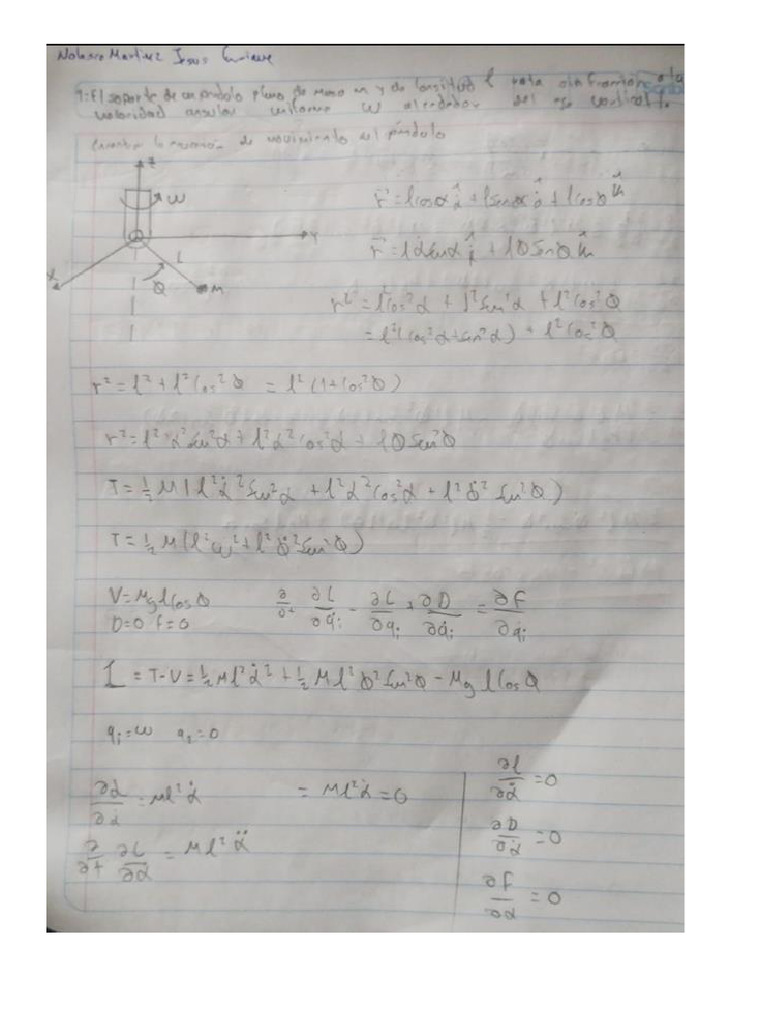 Nolasco Martinez Jesus Enrique
1: El soporte de un pendulo plano de masa m y de longitud l rota sin friccion a la
velocidad angular uniforme w alrededor del eje vertical
Encontrar la ecuación de movimiento del péndulo
Z
w
Y
X
L
θ
M
r⃗ = lcosα î + lsenα ĵ + lcosθ k̂
r⃗ = lα̇senα î + lθsenθ k̂
r² = l²cos²α + l²sen²α + l²cos²θ
= l²(cos²α+sen²α) + l²cos²θ
r² = l² + l²cos²θ = l²(1+cos²θ)
r² = l²α²sen²α + l²α²cos²α + lθsen²θ
T = ½ M(l²α̇²sen²α + l²α̇²cos²α + l²θ̇²sen²θ)
T = ½ M(l²w²+l²θ̇²sen²θ)
V = Mglcosθ
∂/∂t ∂L/∂q̇i - ∂L/∂qi + ∂D/∂q̇i = ∂f/∂qi
D=0 f=0
L = T-V = ½ Ml²α̇² + ½ Ml²θ̇²sen²θ - Mglcosθ
qi=w q1=θ
∂L/∂α̇ = Ml²α̇ = Ml²α̈ = 0
∂/∂t ∂L/∂α̇ = Ml²α̈
∂l/∂α = 0
∂D/∂α̇ = 0
∂f/∂α = 0